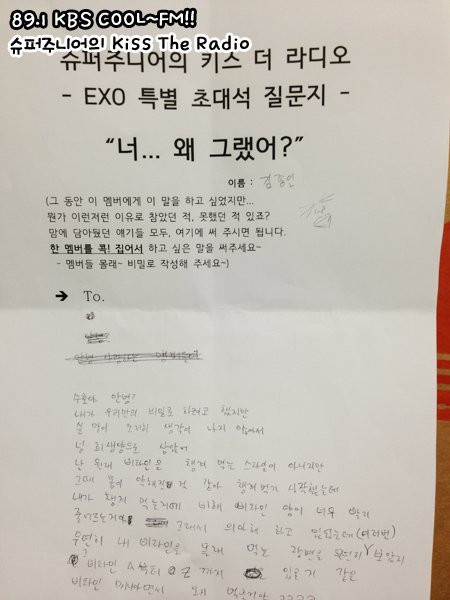 89.1 KBS COOL~FM!!
슈퍼주니어의 Kiss The Radio
슈퍼주니어의 키스 더 라디오
- EXO 특별 초대석 질문지 -
“너... 왜 그랬어?”
이름 : 김종인
(그 동안 이 멤버에게 이 말을 하고 싶었지만...
뭔가 이런저런 이유로 참았던 적, 못했던 적 있죠?
맘에 담아뒀던 얘기들 모두, 여기에 써 주시면 됩니다.
한 멤버를 콕! 집어서 하고 싶은 말을 써주세요~
- 멤버들 몰래~ 비밀로 작성해 주세요~)
➔ To.
수호야 안녕?
내가 우리만의 비밀로 하려고 했지만
할 말이 도저히 생각이 나지 않아서
널 희생양으로 삼았어
난 원래 비타민을 챙겨 먹는 스타일이 아니지만
그때 몸이 약해진 것 같아 챙겨먹기 시작했는데
내가 챙겨 먹는거에 비해 비타민 양이 너무 빨리
줄어드는거야 그래서 의아해 하고 있었는데 (여러번)
우연히 내 비타민을 몰래 먹는 장면을 목격
비타민 A부터 Z까지 입을거 같은
비타민